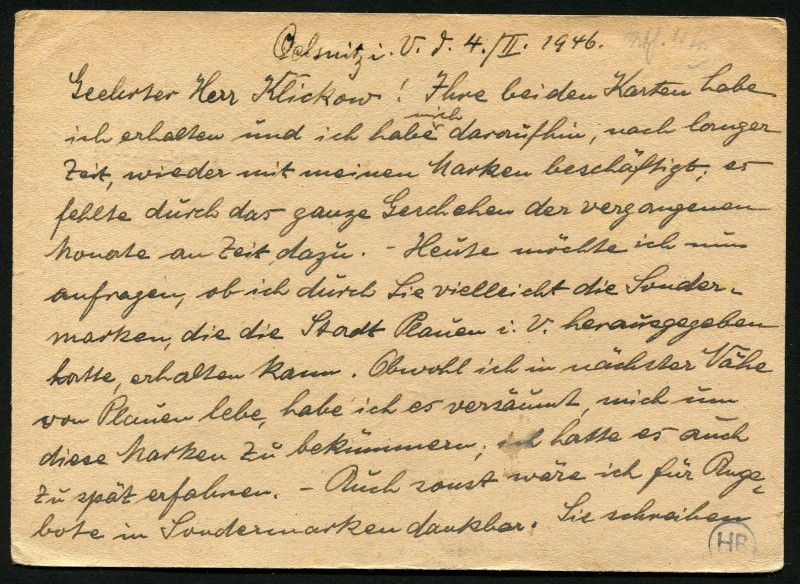 Oelsnitz i. V. d. 4./II. 1946.
Geehrter Herr Klickow! Ihre beiden Karten habe
mich
ich erhalten und ich habe daraufhin, nach langer
Zeit, wieder mit meinen Marken beschäftigt; es
fehlte durch das ganze Geschehen der vergangenen
Monate an Zeit dazu. – Heute möchte ich nun
anfragen, ob ich durch Sie vielleicht die Sonder-
marken, die die Stadt Plauen i. V. herausgegeben
hatte, erhalten kann. Obwohl ich in nächster Nähe
von Plauen lebe, habe ich es versäumt, mich um
diese Marken zu bekümmern; ich hatte es auch
zu spät erfahren. – Auch sonst wäre ich für Ange-
bote in Sondermarken dankbar. Sie schreiben
HB